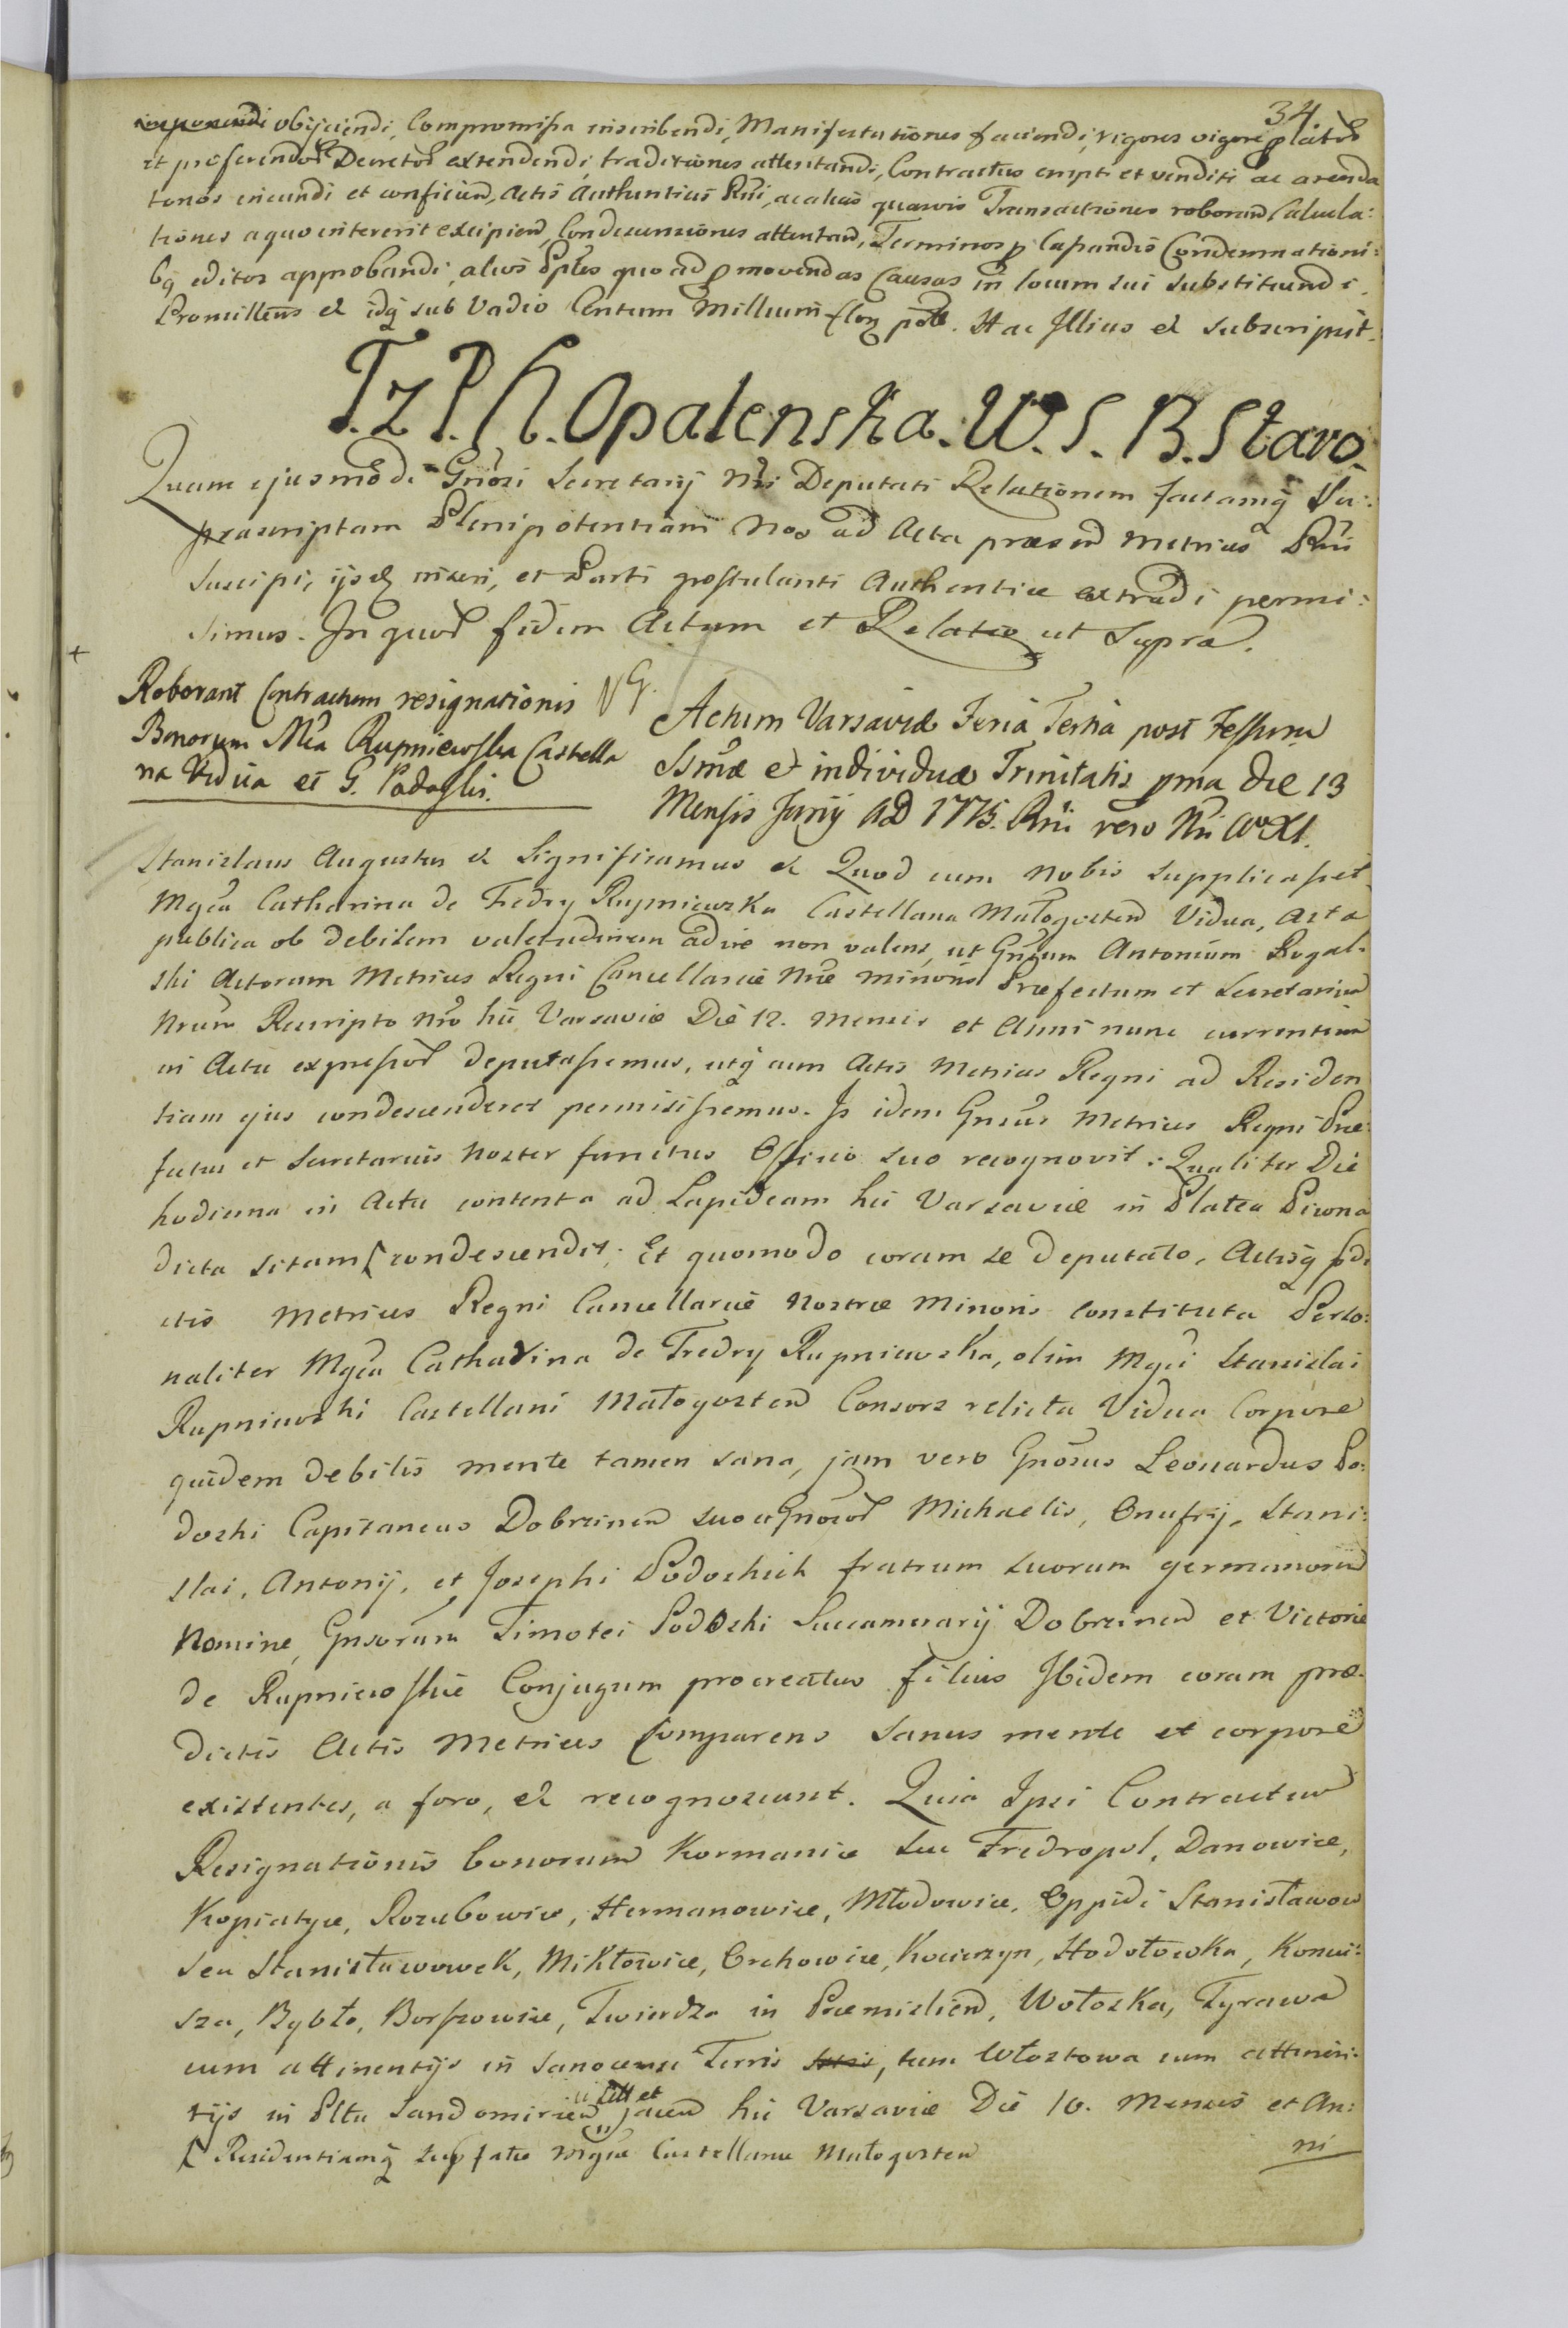 34.
obijciendi, Compromissa inscribendi, Manifestationes faciendi, rigores vigore
et proferendor Decretor extendendi, traditiones attentandi, Contractus empti et venditi ac arenda
torios ineundi et conficien, Actis Authenticis Rni, ac alias quasvis Transactiones roboran Calcula:
tiones a quo intererit excipien, Condescensiones attentan, Terminos p lapsandis Condemnationi:
bq editos approbandi, alios Ples quo ad pmovendas Causas in locum sui substituendi.
Promittens et idq sub Vadio Centum Millium flor pol. Hac Illius et subscripsit.
T. z P. K. Opalenska. W. S. B. Staro.
Quam ejusmodi Gnosi Secretarij Nri Deputati Relationem factamq Su:
prascriptam Plenipotentiam Nos ad Acta præsen Metrices Rni
Suscipi, ijsq inseri, et Parti postulanti Authentice extradi permi:
simus. In quor fidem Actum et Relatio ut Supra.
+
Roborant Contractum resignationis
Bonorum Mca Rupniewska Castella
na Vidua et G. Podoski.
Actum Varsaviæ Feria Tertia post Festum
Ssmæ et individuæ Trinitatis pma die 13
Mensis Junij AD 1775. Rni vero Nri Ao XI.
Stanislaus Augustus et Significamus et Quod cum Nobis supplicasset
Mgca Catharina de Fredry Rupniewska Castellana Małogosten Vidua, Acta
publica ob debilem valetudinem adire non valens, ut Gnsum Antonium Rogal-
ski Actorum Metrices Regni Cancellariæ Nræ minoris Præfectum et Secretarium
Nrum Rescripto Nro hic Varsaviæ Die 12. Mensis et Anni nunc currentium
in Actu expressor deputassemus, utq cum Actis Metrices Regni ad Residen
tiam ejus condescenderet permisissemus. Is idem Gnsus Metrices Regni Præ:
fectus et Secretarius Noster functus Officio suo recognovit: Qualiter Die
hodierna in Actu contenta ad Lapideam hic Varsaviæ in Platea Piwna
dicta sitam [condescendit; Et quomodo coram se Deputato, Actisq pdi
ctis Metrices Regni Cancellariæ Nostræ Minoris constituta Perso:
naliter Mgca Catharina de Fredry Rupniewska, olim Mgci Stanislai
Rupniewski Castellani Małogosten Consors relicta Vidua Corpore
quidem debilis mente tamen sana, jam vero Gnosus Leonardus Po:
doski Capitaneus Dobrzinen suo et Gnosor Michaelis, Onufrij, Stani:
slai, Antonij, et Josephi Podoskich fratrum suorum germanorum
Nomine, Gnsorum Timotei Podoski Succamerarij Dobrzinen et Victoriæ
de Rupniewskie Conjugum procreatus filius Ibidem coram præ-
dictis Actis Metrices Comparens Sanus mente et corpore
existentes, a foro, et recognoscunt. Quia Ipsi Contractum
Resignationis bonorum Kormanice seu Fredropol, Danowice,
Kopiatyce, Rozubowice, Hermanowice, Młodowice, Oppidi Stanisławow
seu Stanisławowek, Mikłowice, Orchowice, Koiuszyn, Hodołowka, Koniu:
sza, Bybło, Borszowice, Twierdza in Præmislien, Wołoska, Tyrawa
cum attinentijs in Sanocensi Terris, tum Włostowa cum attinen:
tijs in Pltu Sandomirien sitt et jacen hic Varsaviæ Die 10. Mensis et An:
[ Residentiamq supfatæ Mgcæ Castellanæ Małogosten
ni